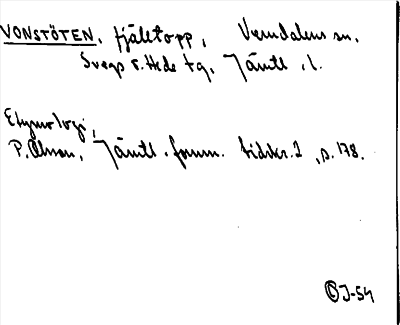 VONSTÖTEN, fjälltopp, Vemdalens sn.
Svegs o. Hede tg, Jämtl. l.
Etymologi,
P. Olsson, Jämtl. fornm. tidskr. 2, s. 178.
J-54